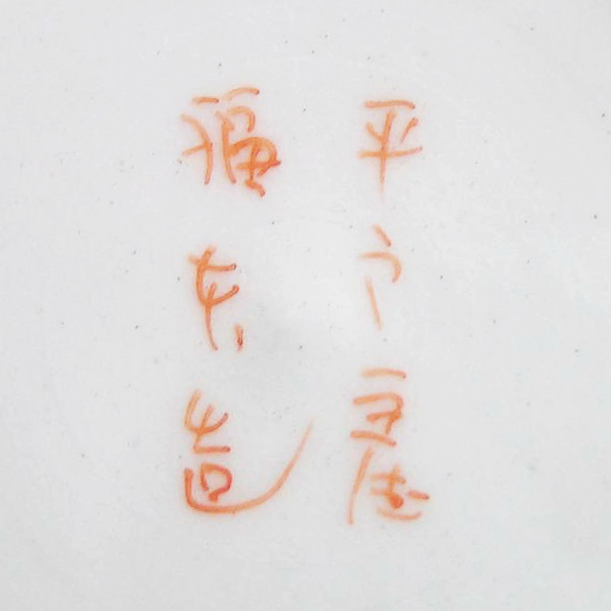 平戸産
福本造